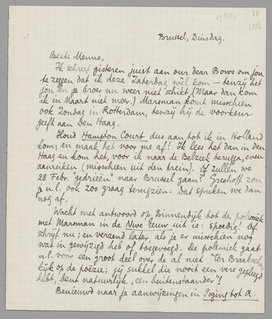 Brussel, Dinsdag.
Beste Menno,
Ik schreef gisteren juist aan our dear Bows om jou
te zeggen dat ik deze Zaterdag wil kom - tenzij het
jou en je broer nu weer niet schikt (Maar dan kom
ik in Maart niet meer.) Marsman komt misschien
ook Zondag in Rotterdam, tenzij hij de voorkeur
geeft aan Den Haag.
Houd Hampton Court dus aan tot ik in Holland
kom; en maak het voor me af! Ik lees het dan in den
Haag en kom het, voor ik naar de Belziek terugga, even
aanreiken (misschien uit den trein). Of zullen we
28 Febr. "gedrieën" naar Brussel gaan? Greshoff zou
je n.l. ook zoo graag terugzien. Dat spreken we dan
nog af.
Wacht met antwoord op Binnendijk tot de polemiek
met Marsman in de Nwe Eeuw uit is: spoedig! Of
schrijf nu; en verzend later, als je er misschien nog
wat in gewijzigd heb of toegevoegd. De polemiek gaat
n.l. voor een groot deel over de al niet "ter Braaksch"
kijk op de poëzie; jij sukkel die nooit een vers gepleegd
hebt, bent natuurlijk "een buitenstaander"!
Benieuwd naar je aanmerkingen in Poging tot A.